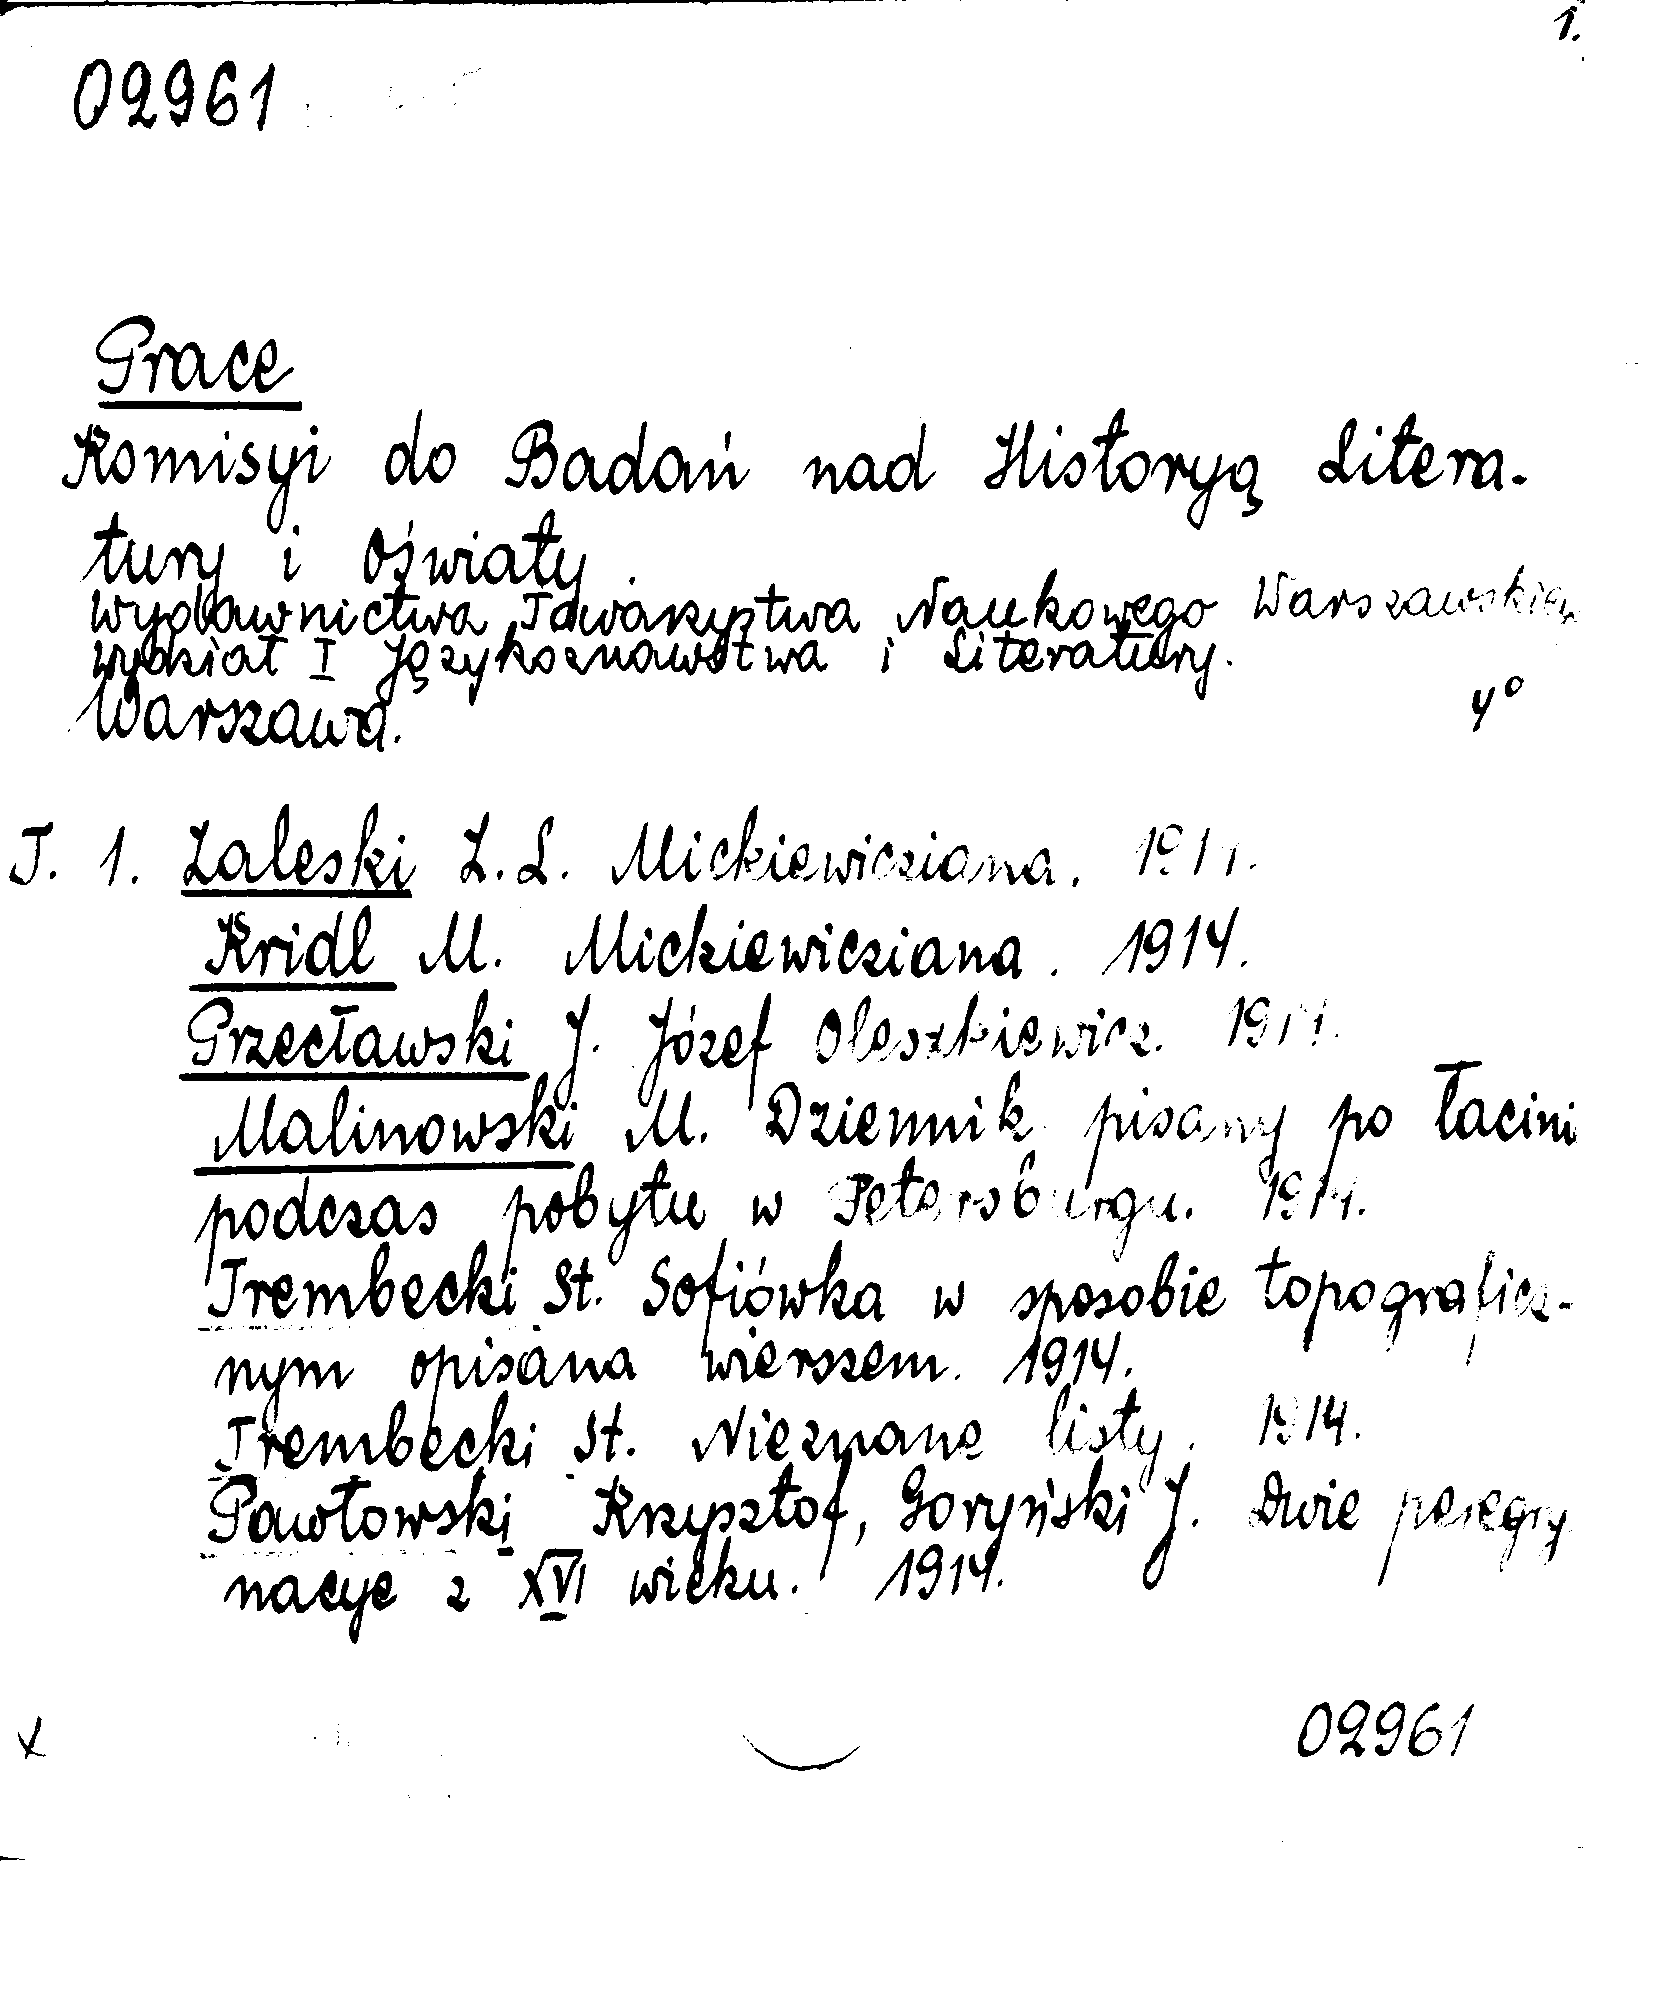 1.
02961
Prace
Komisyi do Badań nad Historyą Litera-
tury i Oświaty.
Wydawnictwa Towarzystwa Naukowego Warszawskieg
wydział I Językoznawstwa i Literatury.
Warszawa. 4°
T. 1. Zaleski Z.L. Mickiewicziana. 1914.
Kridl M. Mickiewicziana. 1914.
Przecławski J. Józef Oleszkiewicz. 1914.
Malinowski M. Dziennik pisany po łacini
podczas pobytu w Petersburgu. 1914.
Trembecki St. Sofiówka w sposobie topograficz-
nym opisana wierszem. 1914.
Trembecki St. Nieznane listy. 1914.
Pawłowski Krzysztof, Goryński J. Dwie peregry
nacye z XVI wieku. 1914.
x 02961